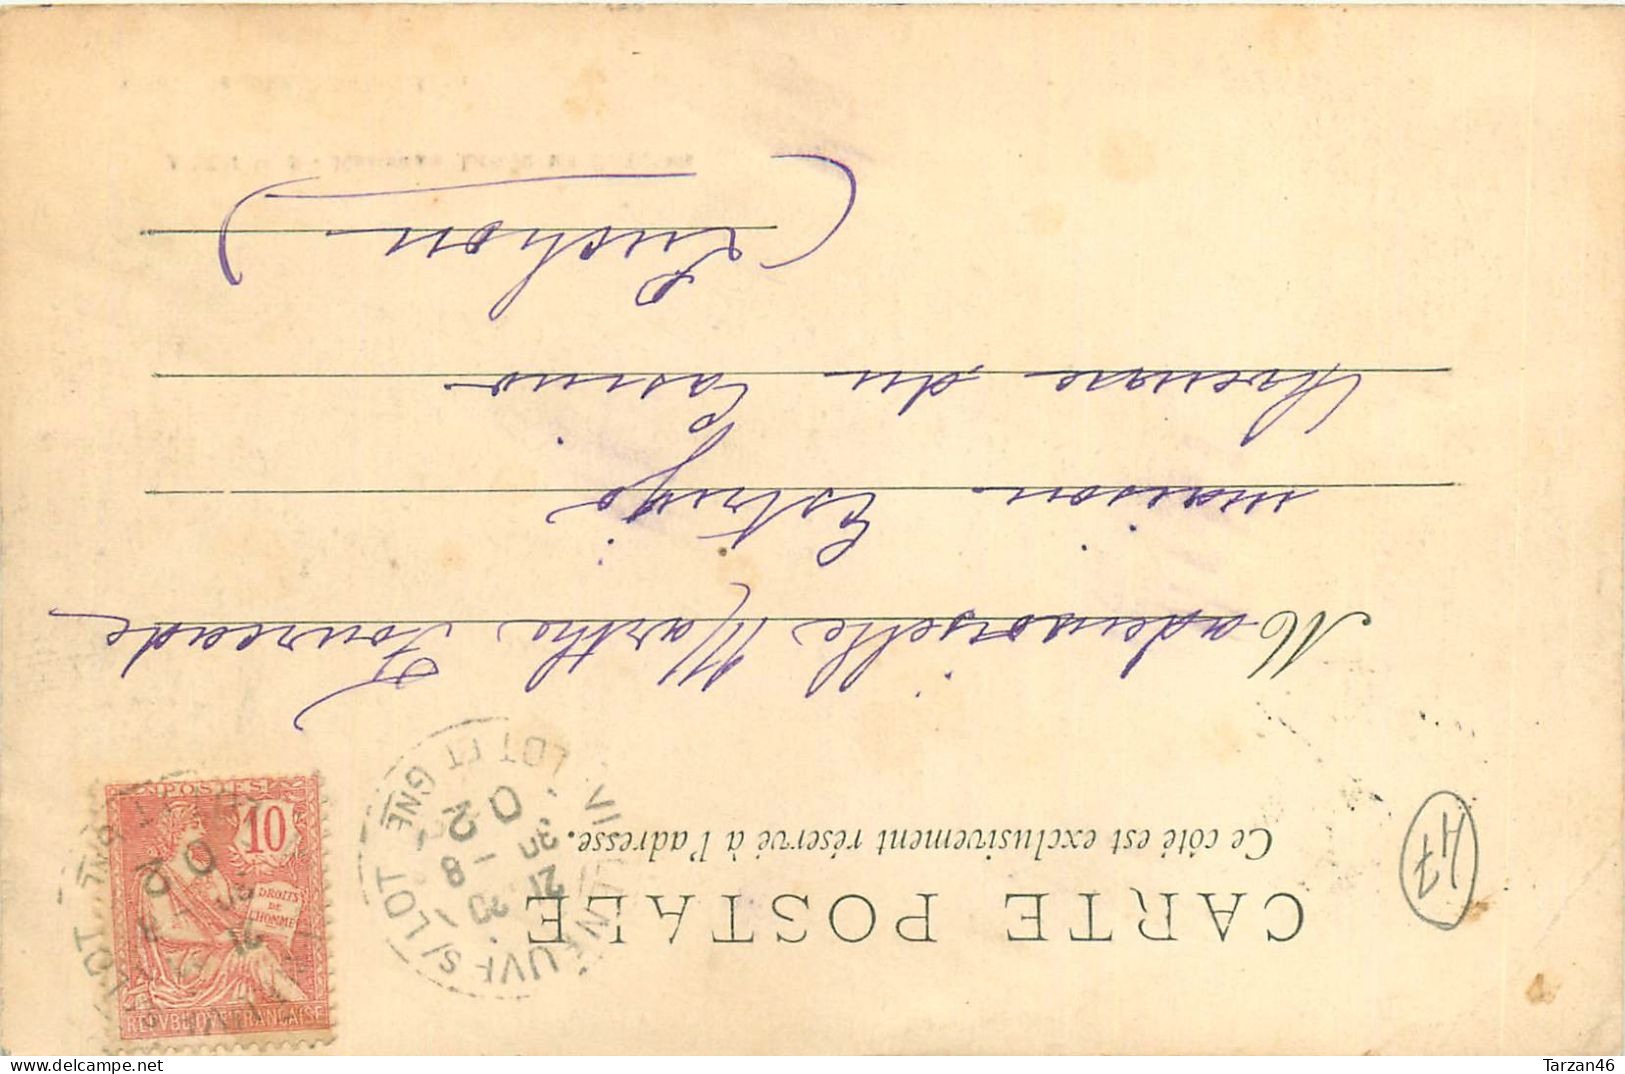 CARTE POSTALE
Ce côté est exclusivement réservé à l'adresse.
Mademoiselle Marthe Fourcade
maison Estrujo
Avenue du Casino
Luchon
47
POSTES
10
DROITS
DE
L'HOMME
REPVBLIQVE FRANÇAISE
VILLENEUVE S/ LOT
LOT ET GNE
21
8
02
delcampe.net
Tarzan46